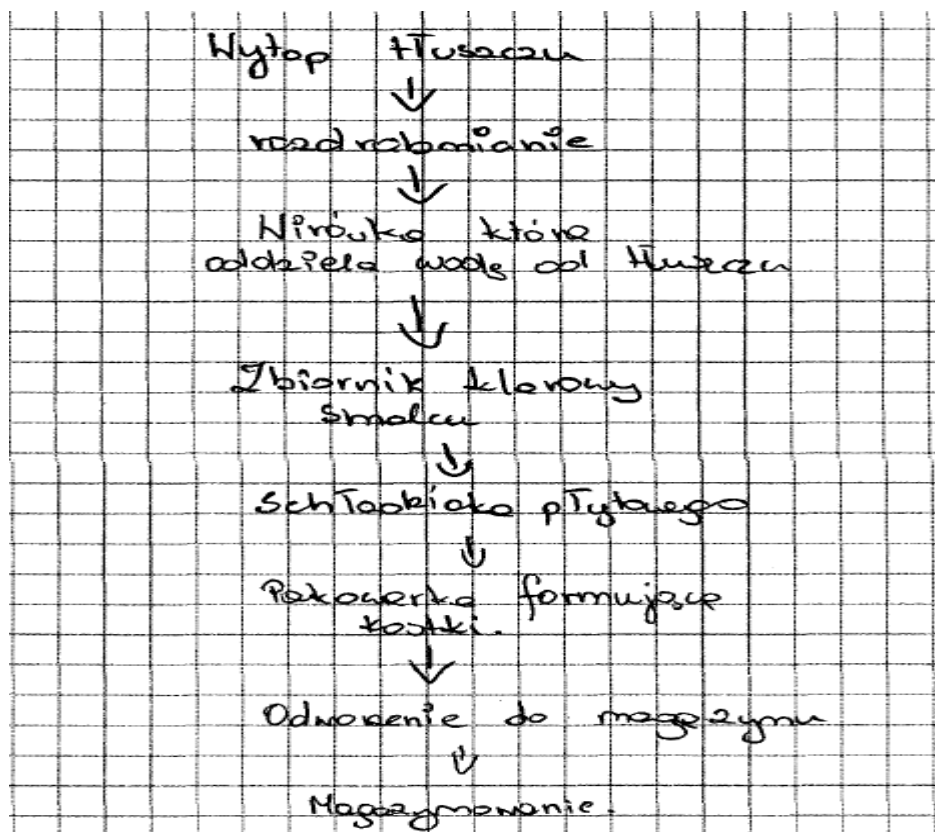 Wytop tłuszczu
rozdrabnianie
Wirówka która
oddziela wodę od tłuszczu
Zbiornik klarowny
smalcu
Schładziaka płytowego
Pakowarka formująca
kostki.
Odnoszenie do magazynu
Magazynowanie.